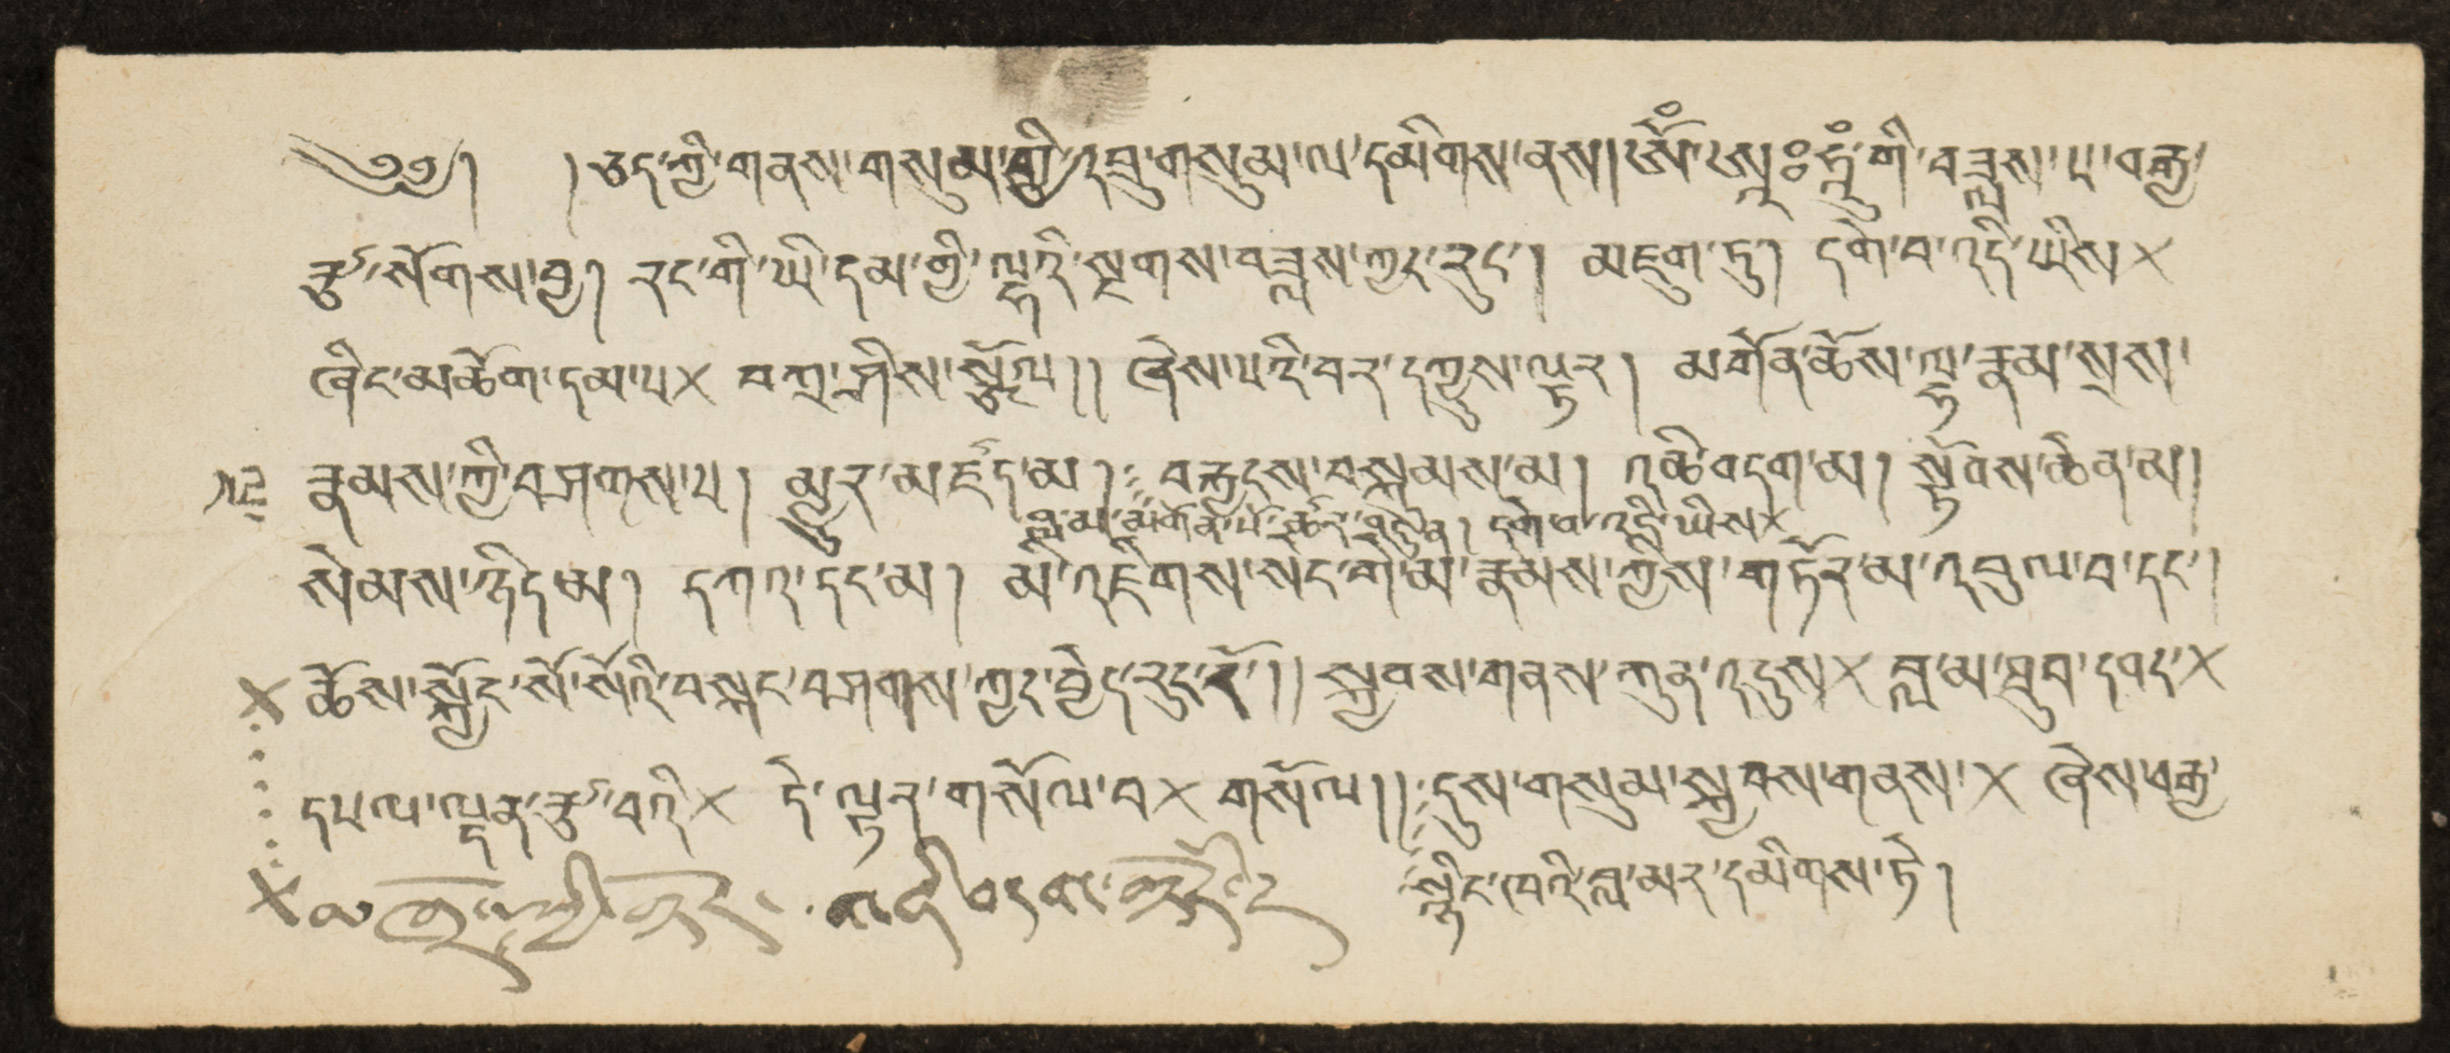 ༄༅། །ཉིད་ཀྱི་གནས་གསུམ་གྱི་འབྲུ་གསུམ་ལ་དམིགས་ནས། ཨོཾ་ཨཱཿཧཱུྃ་གི་བཟླས་པ་བརྒྱ་
རྩ་སོགས་བྱ། རང་གི་ཡི་དམ་གྱི་ལྷའི་སྔགས་བཟླས་ཀྱང་རུང་། མཇུག་ཏུ། དགེ་བ་འདི་ཡིས×
ཞིང་མཆོག་དམ་པ× བཀྲ་ཤིས་སྩོལ།། ཞེས་པའི་བར་དཀྱུས་ལྟར། མགོན་ཆོས་ལྷ་རྣམ་སྲས་
རྣམས་ཀྱི་བཤགས་པ། མྱུར་མཛད་མ། བརྒྱངས་བསྐུམས་མ། འཆི་བདག་མ། སྟོབས་ཆེན་མ།
བླ་མ་མགོན་པོ་ཚར་བསྡུན། དགེ་བ་འདི་ཡིས×
སེམས་ཉིད་མ། དཀའ་དང་མ། མི་འཇིགས་སེང་གེ་མ་རྣམས་ཀྱིས་གཏོར་མ་འབུལ་བ་དང་།
× ཆོས་སྐྱོང་སོ་སོའི་བསྐང་བཤགས་ཀྱང་བྱེད་རུང་ངོ་།། སྐྱབས་གནས་ཀུན་འདུས× བླ་མ་སྒྲུབ་དབང་×
དཔལ་ལྡན་རྩ་བའི× དེ་ལྟར་གསོལ་བ× གསོལ།། དུས་གསུམ་སྐྱབས་གནས་× ཞེས་བརྒྱ་
སྙིང་ཁའི་བླ་མར་དམིགས་ཏེ།